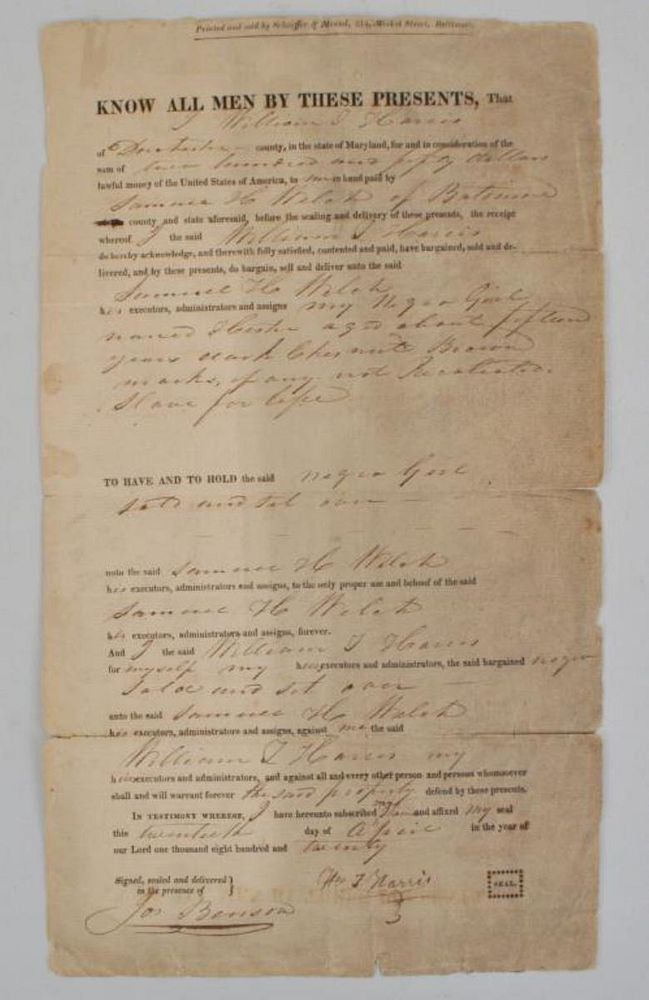 Printed and sold by Schaeffer & Maund, Market Street, Baltimore.
KNOW ALL MEN BY THESE PRESENTS, That
I William T Harris
of Dorchester county, in the state of Maryland, for and in consideration of the
sum of two hundred and fifty dollars
lawful money of the United States of America, to me in hand paid by
Samuel H Welch of Baltimore
county and state aforesaid, before the sealing and delivery of these presents, the receipt
whereof I the said William T Harris
do hereby acknowledge, and therewith fully satisfied, contented and paid, have bargained, sold and de-
livered, and by these presents, do bargain, sell and deliver unto the said
Samuel H Welch
his executors, administrators and assigns my Negro Girl
named Hester aged about fifteen
years dark Chesnut Brown
marks, if any not
Slave for life
TO HAVE AND TO HOLD the said negro Girl
sold and set over
unto the said Samuel H Welch
his executors, administrators and assigns, to the only proper use and behoof of the said
Samuel H Welch
his executors, administrators and assigns, forever.
And I the said William T Harris
for myself my heirs executors and administrators, the said bargained negro
sold and set over
unto the said Samuel H Welch
his executors, administrators and assigns, against me the said
William T Harris my
heirs executors and administrators, and against all and every other person and persons whomsoever
shall and will warrant forever the said property defend by these presents.
IN TESTIMONY WHEREOF, I have hereunto subscribed my name and affixed my seal
this twentieth day of April in the year of
our Lord one thousand eight hundred and twenty
Signed, sealed and delivered
in the presence of
Wm T Harris
SEAL.
Jos Benson